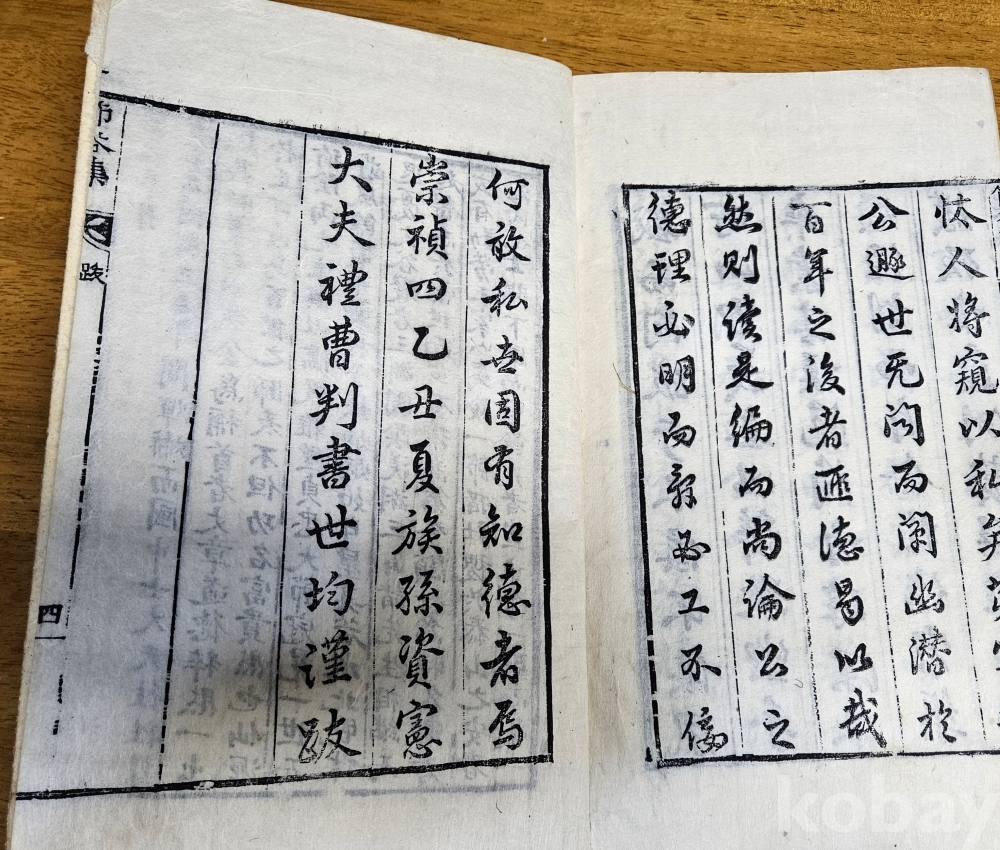 怢人將窺以私矣
公遯世无悶而闡幽潛於
百年之後者匪德曷以哉
然則讀是編而尚論公之
德理必明而辭必工不佞
何敢私世固有知德者焉
崇禎四乙丑夏族孫資憲
大夫禮曹判書世均謹跋
節谷集
跋
四
kobay